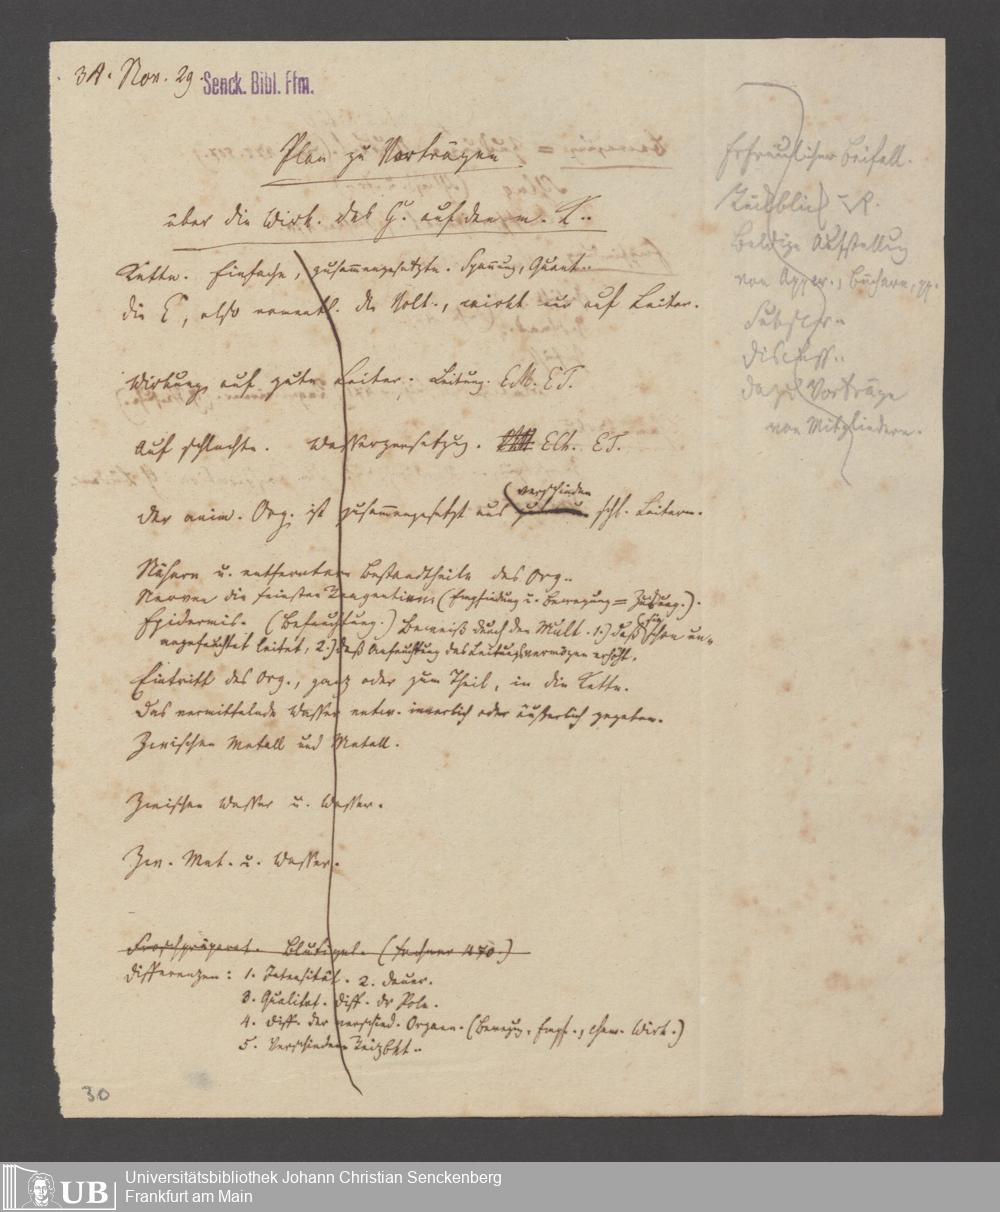 34. Nov. 29.
Senck. Bibl. Ffm.
Plan zu Vorträgen
über die Wirk. des G. auf den m. K..
Kette. Einfache, zusammengesetzte. Spannung, Quant..
die E, also eventl. die Volt., wirkt nur auf Leiter.
Wirkung auf gute Leiter. Leitung. EM. ET.
Auf schlechte. Wasserzersetzug. ECh. ET.
Der anim. Org. ist zusammengesetzt aus verschieden schl. Leitern.
Nähere u. entferntere Bestandtheile des Org..
Nerven die feinsten Reagentien (Empfindung u. Bewegung = Zuckung.).
Epidermis. (Befeuchtung.) Beweiß durch den Mult. 1.) daß sie schon un-
angefeuchtet leitet, 2.) daß Anfeuchtung das Leitungsvermögen erhöht.
Eintritt des Org., ganz oder zum Theil, in die Kette.
Das vermittelnde Wasser entw. innerlich oder äußerlich gegeben.
Zwischen Metall und Metall.
Zwischen Wasser u. Wasser.
Zw. Met. u. Wasser.
Froschpräparat. Blutigel. (Fechner 470.)
Differenzen: 1. Intensität. 2. Dauer.
3. Qualitat. Diff. dr Pole.
4. Diff. der verschied. Organe. (Bewegg, Empf., chem. Wirk.)
5. Verschiedene Reizbkt..
Erfreulicher Beifall.
Rückblick
Baldige Aufstellung
von Appar., Büchern, pp.
Subscr.
Discuss..
dazu Vorträge
von Mitgliedern.
30
UB
Universitätsbibliothek Johann Christian Senckenberg
Frankfurt am Main